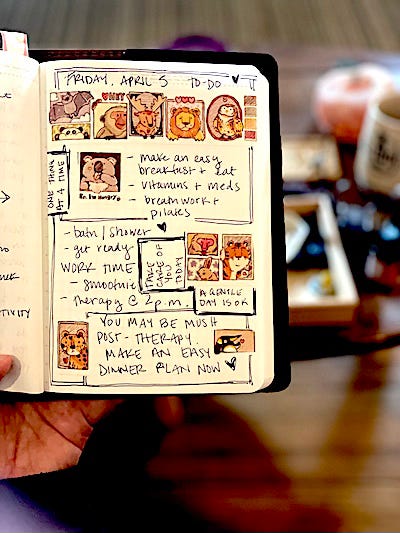 FRIDAY, APRIL 5 TO-DO
ONE THING
AT A TIME
- make an easy
breakfast + eat
- vitamins + meds
- breathwork +
pilates
- bath / shower
- get ready
WORK TIME
- smoothie
- therapy @ 2 p.m.
TAKE
CARE OF
YOU
TODAY
A GENTLE
DAY IS OK
YOU MAY BE MUSH
POST-THERAPY.
MAKE AN EASY
DINNER PLAN NOW